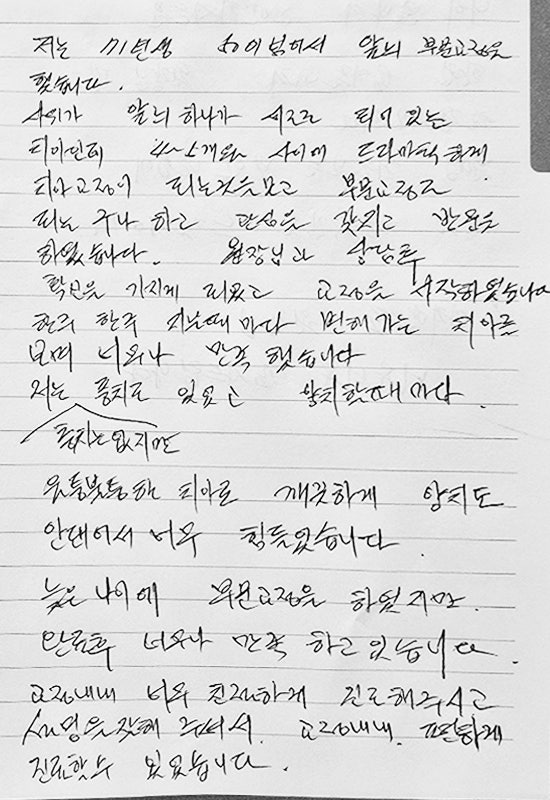 저는 71년생 50이 넘어서 앞니 부분교정을
했습니다.
앞니 하나가 되어 있는
치아인데 소개와 사이에 드라마틱하게
치아교정이 되는것을보고 부분교정도
되는 구나 하고 관심을 갖지고 반문을
하였습니다. 원장님과 상담후
확신을 가지게 되었고 교정을 시작하였습니다
한주 한주 지날때 마다 변해가는 치아를
보며 너무나 만족 했습니다
저는 충치도 있었고 양치할때마다.
충치는 있지만
울퉁불퉁한 치아로 깨끗하게 양치도
안돼어서 너무 힘들었습니다.
늦은 나이에 부분교정을 하였지만.
완료후 너무나 만족 하고있습니다.
교정내내 너무 친절하게 진료해주시고
설명을잘해 주셔서. 교정내내. 편안하게
진료할수 있었습니다.